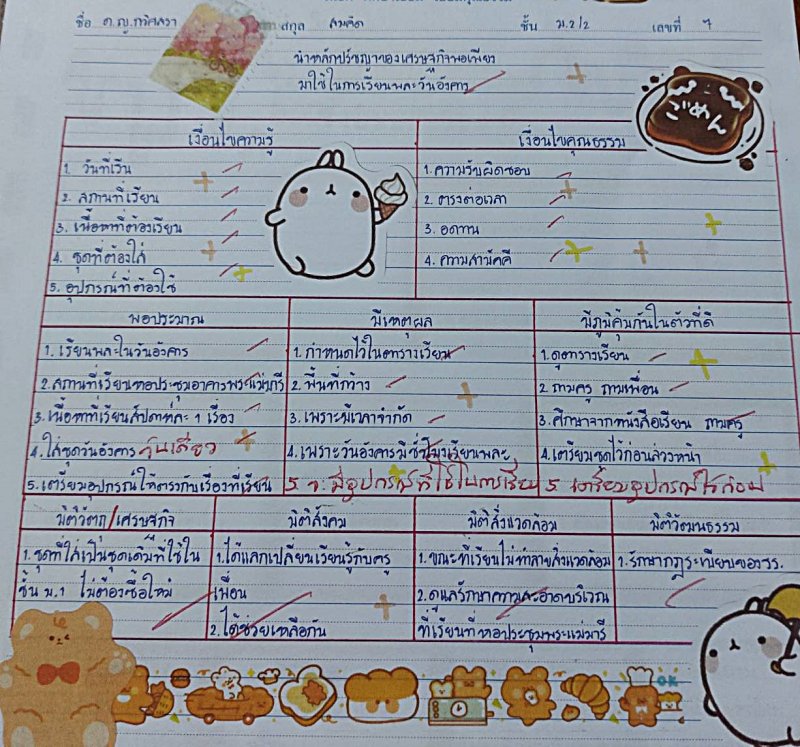 ชื่อ ด.ญ.กวิสสรา สกุล สมคิด ชั้น ม.2/2 เลขที่ 7
นำหลักปรัชญาของเศรษฐกิจพอเพียง
มาใช้ในการเรียนพละวันอังคาร
ごめん
เงื่อนไขความรู้
1. วันที่เรียน
2. สถานที่เรียน
3. เนื้อหาที่ต้องเรียน
4. ชุดที่ต้องใส่
5. อุปกรณ์ที่ต้องใช้
เงื่อนไขคุณธรรม
1. ความรับผิดชอบ
2. ตรงต่อเวลา
3. อดทน
4. ความสามัคคี
พอประมาณ
1. เรียนพละในวันอังคาร
2. สถานที่เรียนหอประชุมอาคารพระแม่มารี
3. เนื้อหาที่เรียนสัปดาห์ละ 1 เรื่อง
4. ใส่ชุดวันอังคาร วันเดียว
5. เตรียมอุปกรณ์ให้ตรงกับเรื่องที่เรียน
มีเหตุผล
1. กำหนดไว้ในตารางเรียน
2. พื้นที่กว้าง
3. เพราะมีเวลาจำกัด
4. เพราะวันอังคารมีชั่วโมงเรียนพละ
5. จ. มีอุปกรณ์ที่ใช้ในการเรียน
มีภูมิคุ้มกันในตัวที่ดี
1. ดูตารางเรียน
2. ถามครู ถามเพื่อน
3. ศึกษาจากหนังสือเรียน ถามครู
4. เตรียมชุดไว้ก่อนล่วงหน้า
5. เตรียมอุปกรณ์ไว้ก่อน
มิติวัตถุ/เศรษฐกิจ
1. ชุดที่ใส่เป็นชุดเดิมที่ใช้ใน
ชั้น ม.1 ไม่ต้องซื้อใหม่
มิติสังคม
1. ได้แลกเปลี่ยนเรียนรู้กับครู
เพื่อน
2. ได้ช่วยเหลือกัน
มิติสิ่งแวดล้อม
1. ขณะที่เรียนไม่ทำลายสิ่งแวดล้อม
2. ดูแลรักษาความสะอาดบริเวณ
ที่เรียนที่หอประชุมพระแม่มารี
มิติวัฒนธรรม
1. รักษากฎระเบียบของรร.
OK